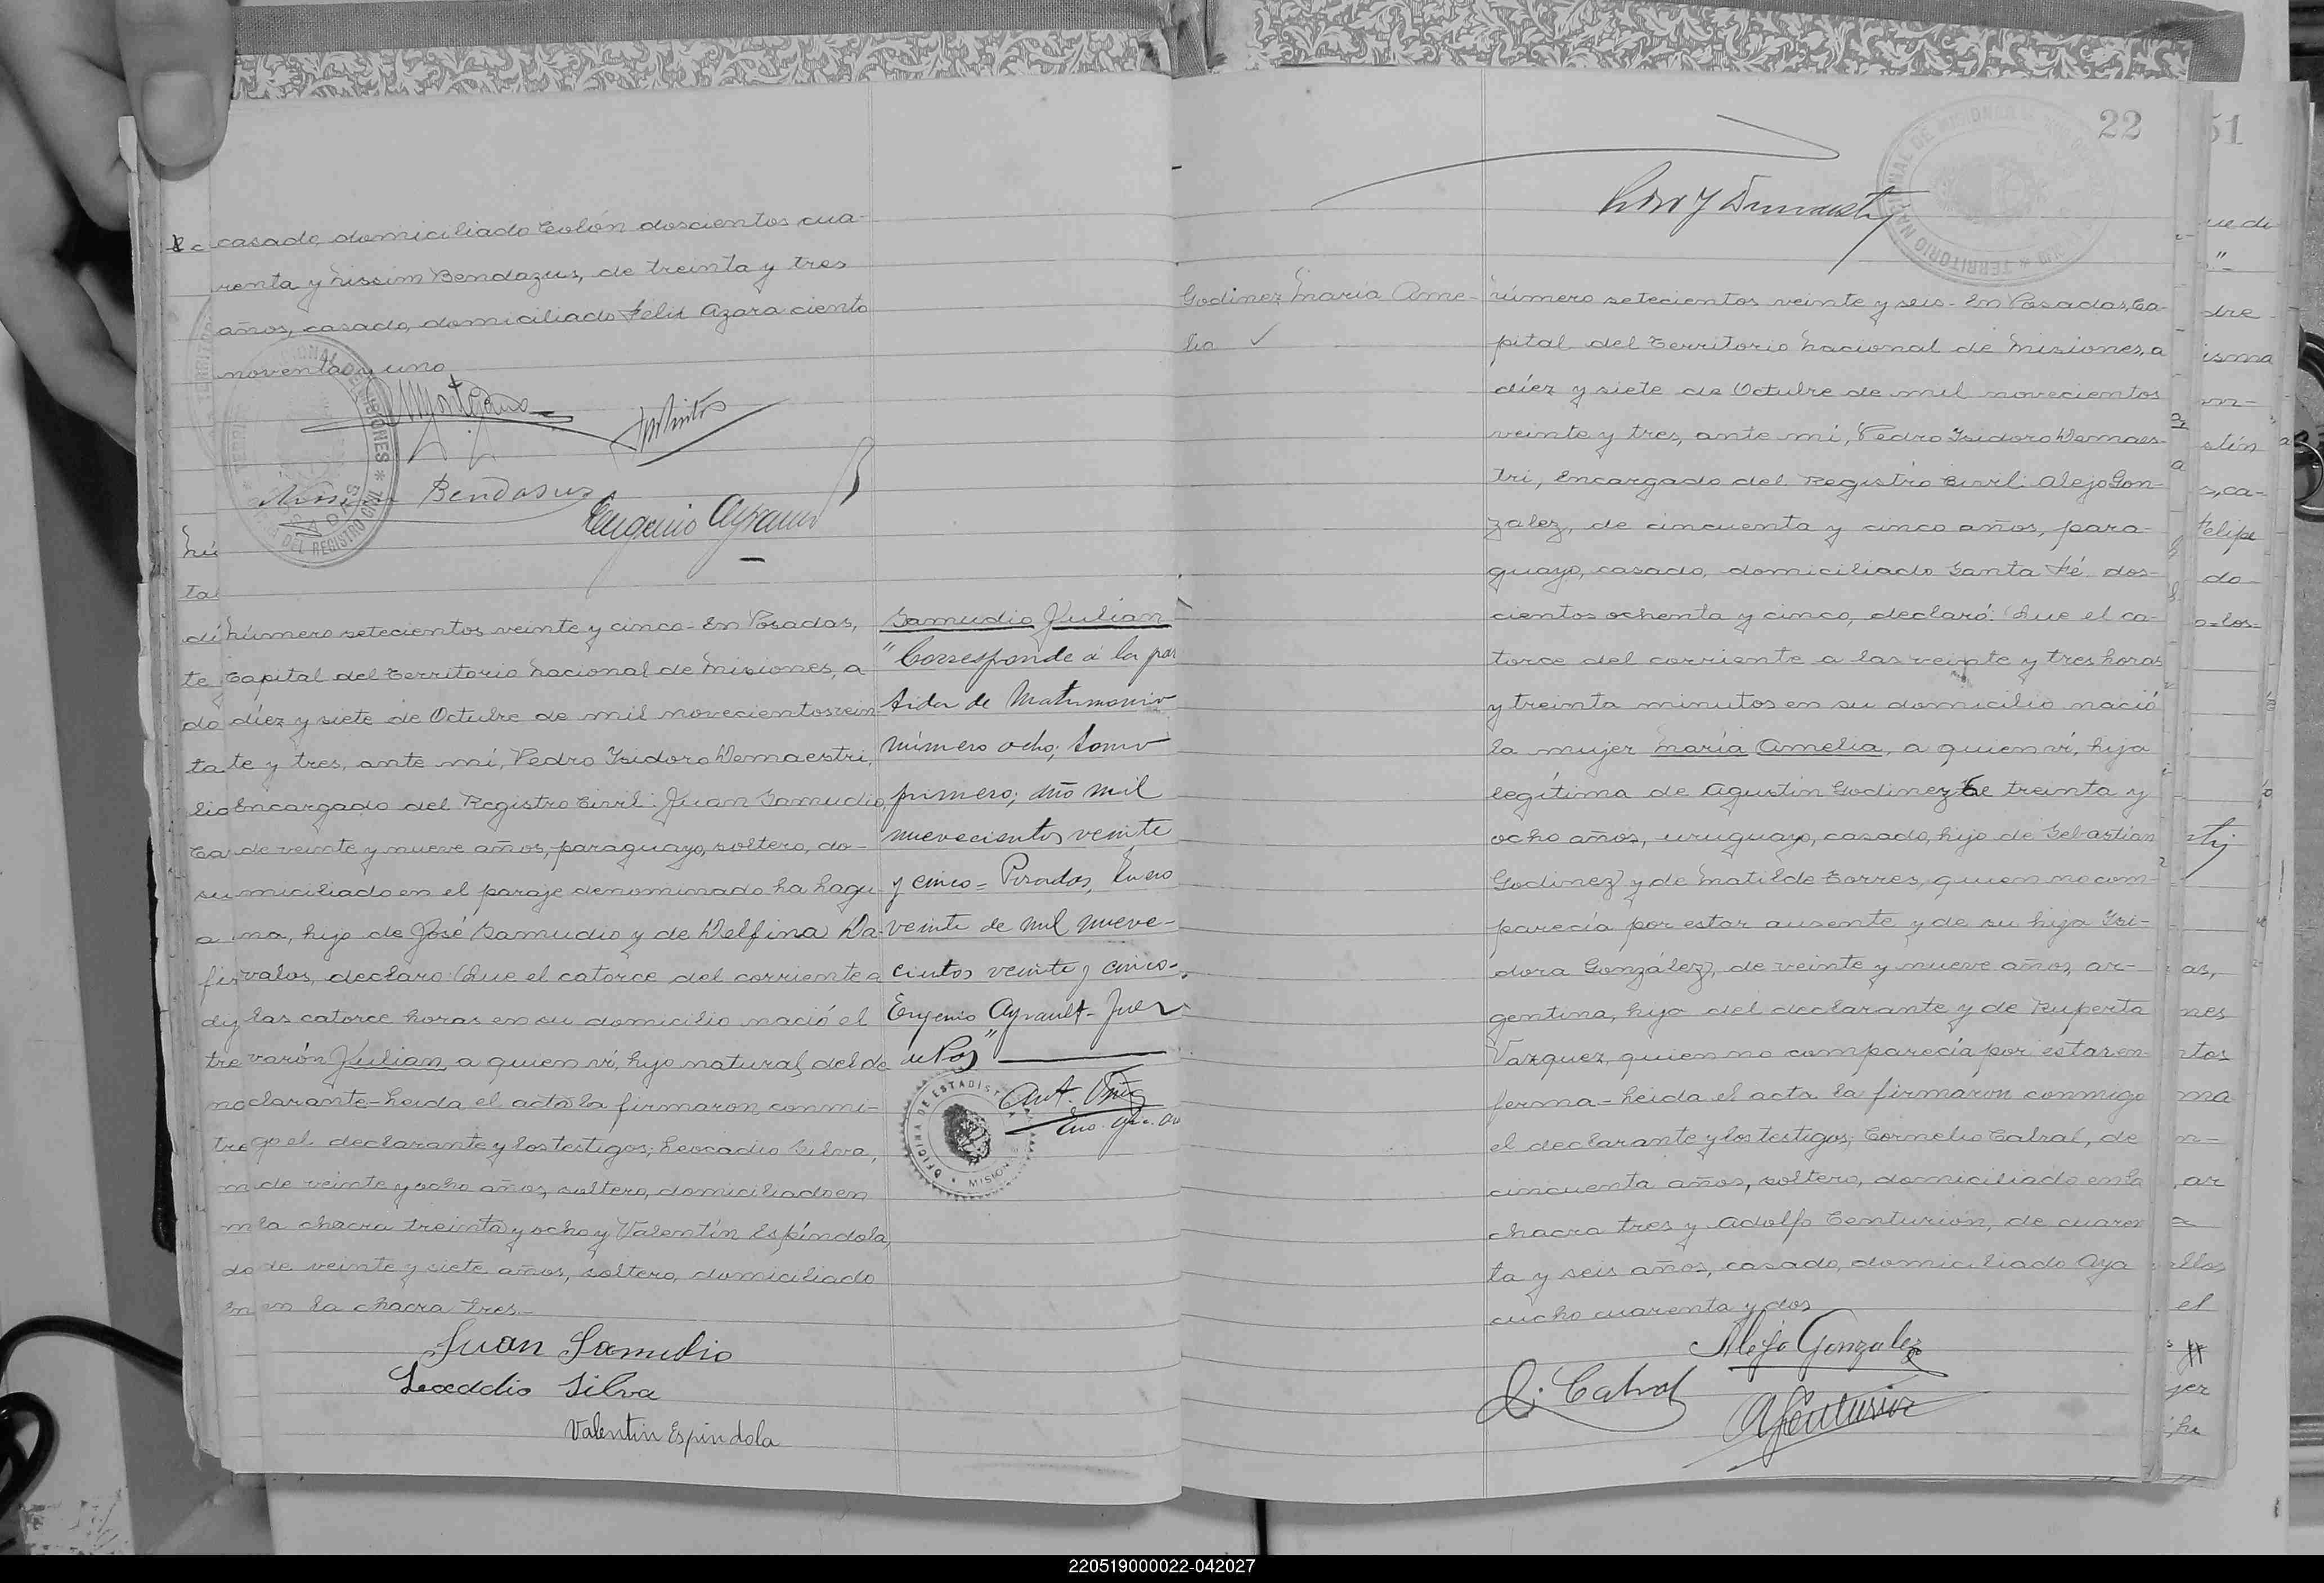 casado, domiciliado Colón doscientos cua-
renta y Nissim Bendazus, de treinta y tres
años, casado, domiciliado Felix Azara ciento
noventa y uno
Bendasus
Eugenio Ayrault
Número setecientos veinte y cinco- En Posadas,
Capital del Territorio Nacional de Misiones, a
diez y siete de Octubre de mil novecientos vein
te y tres, ante mí, Pedro Isidoro Demaestri,
Encargado del Registro Civil: Juan Samudio,
de veinte y nueve años, paraguayo, soltero, do-
miciliado en el paraje denominado La Lagu
na, hijo de José Samudio y de Delfina Da-
valos, declaro: Que el catorce del corriente a
las catorce horas en su domicilio nació el
varón Julian, a quien ví, hijo natural del de
clarante- Leida el acta la firmaron conmi-
go el declarante y los testigos; Leocadio Silva,
de veinte y ocho años, soltero, domiciliado en
la chacra treinta y ocho y Valentín Espíndola,
de veinte y siete años, soltero, domiciliado
en la chacra tres.-
Juan Samudio
Leocadio Silva
Valentin Espindola
Samudio Julian
"Corresponde á la par
tida de Matrimonio
número ocho; tomo
primero; año mil
nuevecientos veinte
y cinco = Posadas, Enero
veinte de mil nueve-
cientos veinte y cinco-
Eugenio Ayrault- Juez
de Paz"
OFICINA DE ESTADIST
MISIONES
22
51
Godinez Maria Ame-
lia ✓
Número setecientos veinte y seis- En Posadas, Ca-
pital del Territorio Nacional de Misiones, a
diez y siete de Octubre de mil novecientos
veinte y tres, ante mí, Pedro Isidoro Demaes-
tri, Encargado del Registro Civil: Alejo Gon-
zalez, de cincuenta y cinco años, para-
guayo, casado, domiciliado Santa Fé dos-
cientos ochenta y cinco, declaró: Que el ca-
torce del corriente a las veinte y tres horas
y treinta minutos en su domicilio nació
la mujer María Amelia, a quien ví, hija
legítima de Agustin Godinez de treinta y
ocho años, uruguayo, casado, hijo de Sebastian
Godinez y de Matilde Torres, quien no com-
parecía por estar ausente y de su hija Isi-
dora González, de veinte y nueve años, ar-
gentina, hija del declarante y de Ruperta
Vazquez, quien no comparecía por estar en-
ferma- Leida el acta la firmaron conmigo
el declarante y los testigos; Cornelio Cabral, de
cincuenta años, soltero, domiciliado en la
chacra tres y Adolfo Centurión, de cuaren
ta y seis años, casado, domiciliado Aya
cucho cuarenta y dos
Alejo Gonzalez
C. Cabral
A Centurion
220519000022-042027